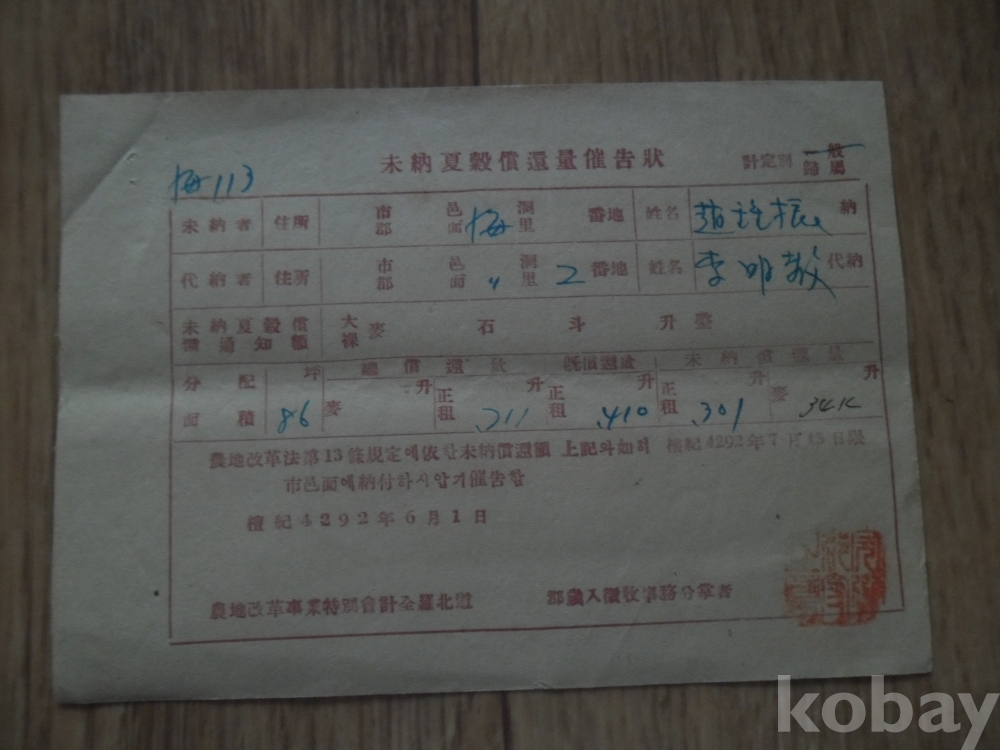 未納夏穀償還量催告狀
計定別 一般 歸屬
梅113
未納者 住所 市郡 邑面 梅 洞里 番地 姓名 趙 振 納
代納者 住所 市郡 邑面 〃 洞里 2 番地 姓名 李明 代納
未納夏穀償還通知額 大裸麥 石 斗 升
分配面積 坪 86 總償還量 麥 升 正租 升 .711 旣償還量 正租 升 .410 未納償還量 正租 升 .301 麥 升 34K
農地改革法第13條規定에依한未納償還額 上記와如히 檀紀4292年7月15日限
市邑面에納付하시압기催告함
檀紀4292年6月1日
農地改革事業特別會計全羅北道 郡歲入徵收事務分掌者
kobay